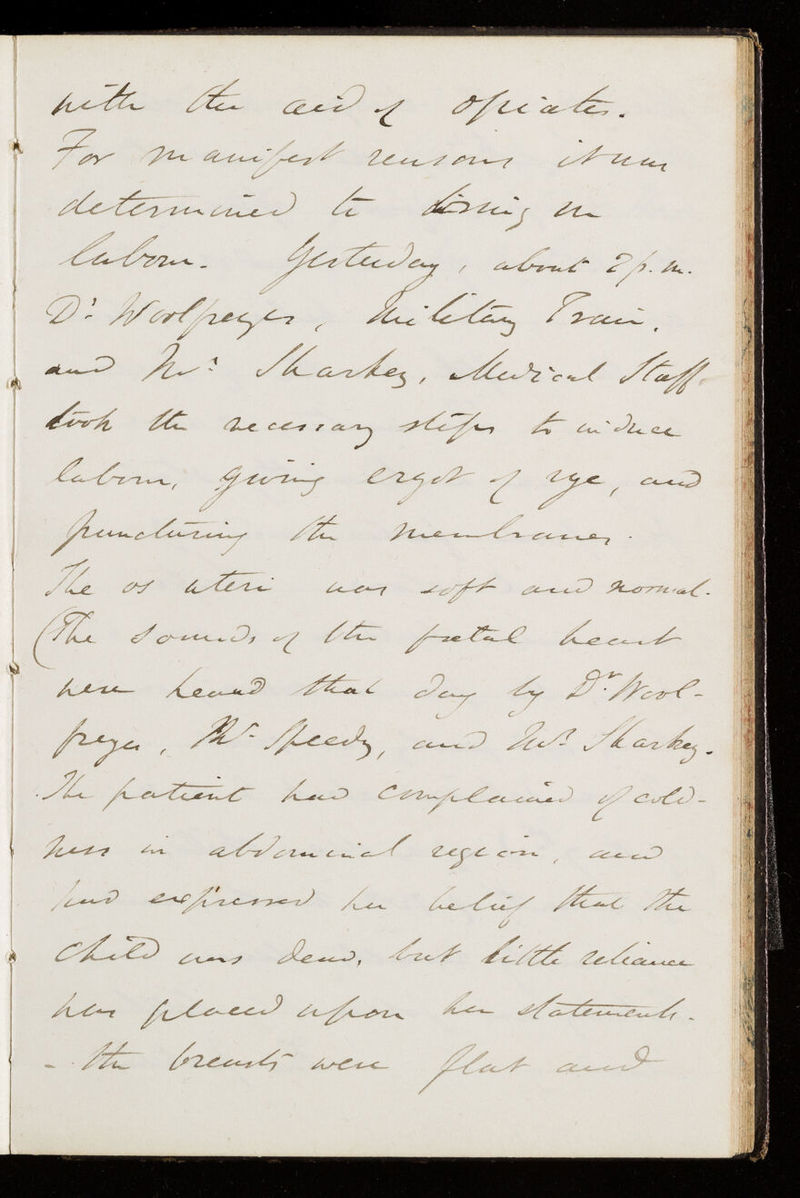 with the aid of opiates.
For manifest reasons it was
determined to bring on
labour. Yesterday, about 2 p.m.
Dr. Woolfreyes, Military Train,
and Mr. Sharkey, Medical Staff
took the necessary steps to induce
labour, giving ergot of rye, and
puncturing the membranes.
The os uteri was soft and normal.
(The sounds of the foetal heart
were heard that day by Dr. Wool-
freyes, Mr. Speedy, and Mr. Sharkey.
The patient had complained of cold-
ness in abdominal region, and
had expressed her belief that the
child was dead, but little reliance
was placed upon her statements.
- the breasts were flat and